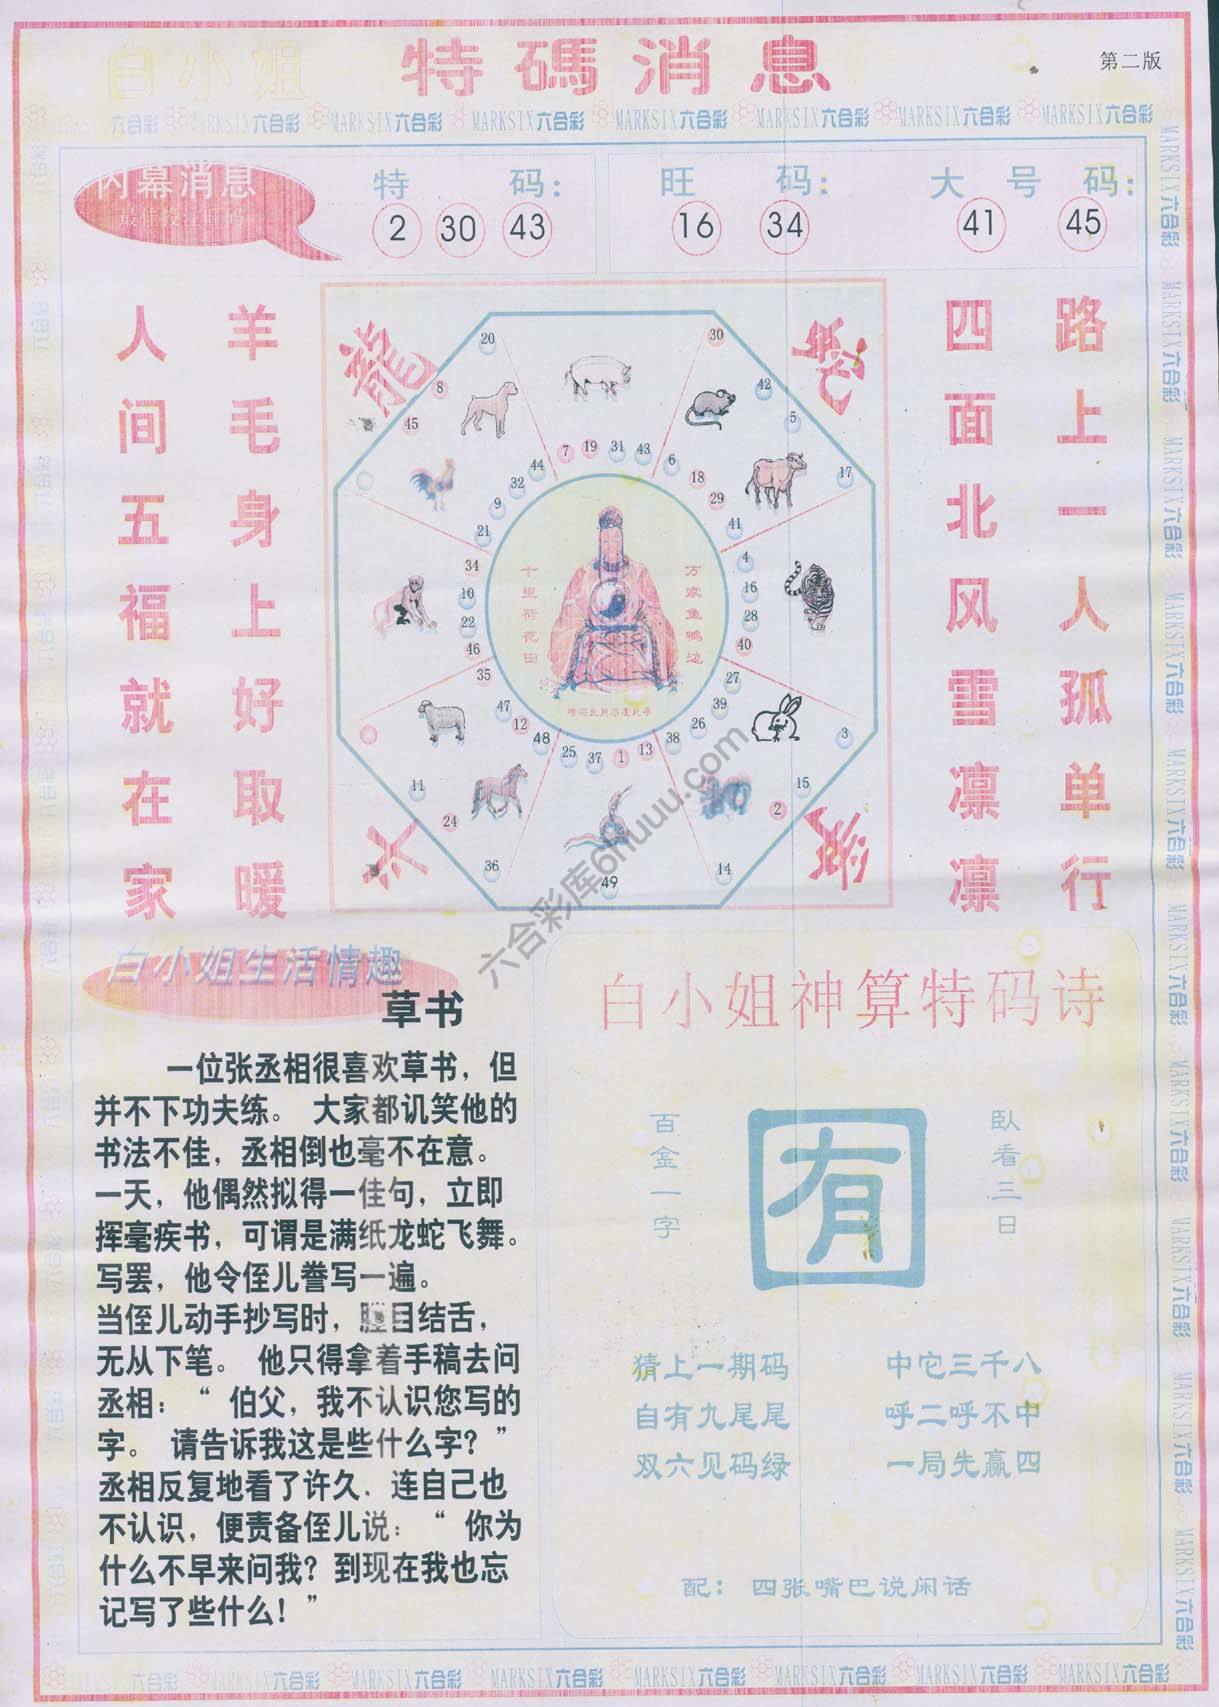 白小姐 特碼消息
第二版
六合彩 MARKSIX六合彩 MARKSIX六合彩 MARKSIX六合彩 MARKSIX六合彩 MARKSIX六合彩 MARKSIX六合彩 MARKSIX六合彩
内幕消息
特 码：
2 30 43
旺 码：
16 34
大 号 码：
41 45
人间五福就在家
羊毛身上好取暖
四面北风雪凛凛
路上一人孤单行
龍
蛇
20
30
8
45
42
5
17
7 19 31 43
44
32
9
21
6
18
29
41
34
10
22
46
4
16
28
40
35
47
12
48
27
39
26
38
25 37 1 13
11
24
36
49
14
2
15
3
十里荷花田
万家鱼鸭边
白小姐生活情趣
草书
一位张丞相很喜欢草书，但
并不下功夫练。 大家都讥笑他的
书法不佳，丞相倒也毫不在意。
一天，他偶然拟得一佳句，立即
挥毫疾书，可谓是满纸龙蛇飞舞。
写罢，他令侄儿誊写一遍。
当侄儿动手抄写时，目结舌，
无从下笔。 他只得拿着手稿去问
丞相：“ 伯父，我不认识您写的
字。 请告诉我这是些什么字？”
丞相反复地看了许久，连自己也
不认识，便责备侄儿说：“ 你为
什么不早来问我？到现在我也忘
记写了些什么！”
白小姐神算特码诗
百金一字
有
臥看三日
猜上一期码 中它三千八
自有九尾尾 呼二呼不中
双六见码绿 一局先赢四
配： 四张嘴巴说闲话
六合彩库6huuu.com
MARKSIX六合彩 MARKSIX六合彩 MARKSIX六合彩 MARKSIX六合彩 MARKSIX六合彩 MARKSIX六合彩 MARKSIX六合彩 MARKSIX六合彩 MARKSIX六合彩 MARKSIX六合彩
六合彩 MARKSIX六合彩 MARKSIX六合彩 MARKSIX六合彩 MARKSIX六合彩 MARKSIX六合彩 MARKSIX六合彩 MARKSIX六合彩